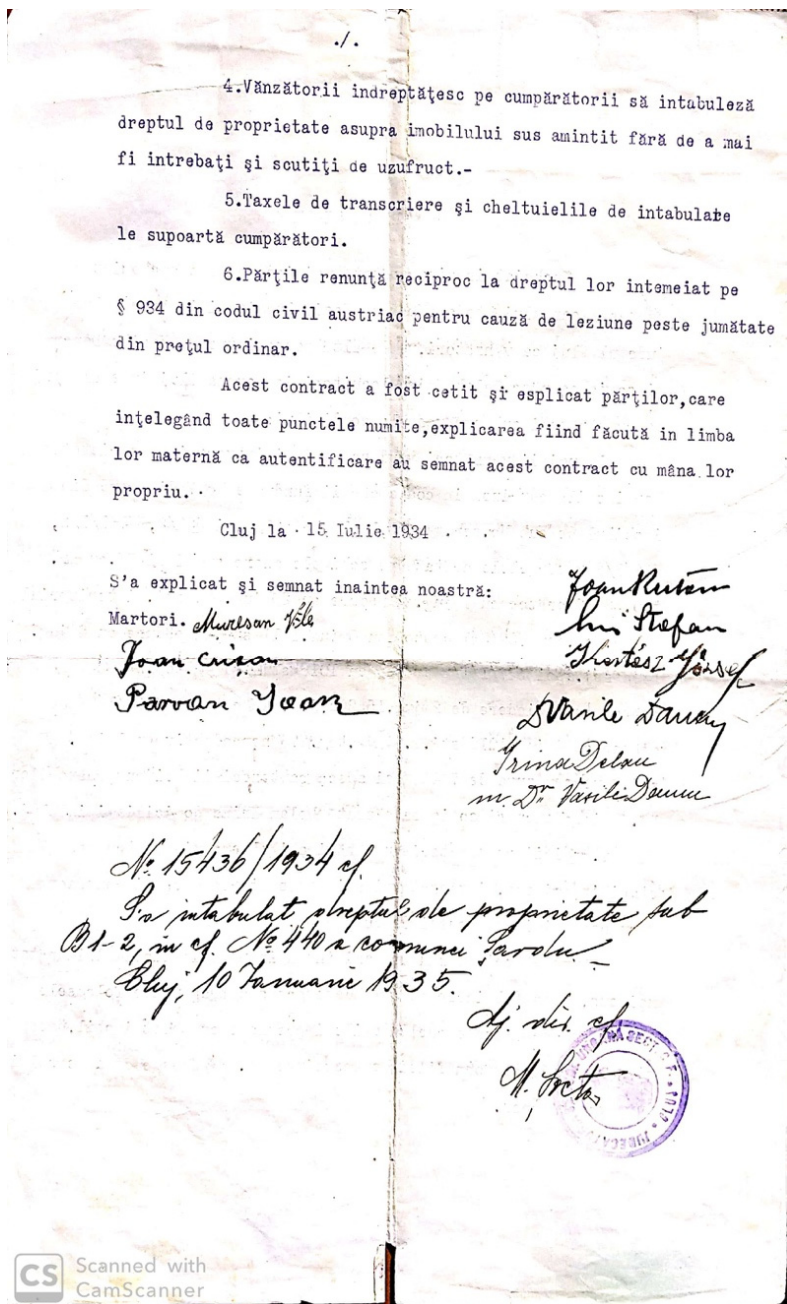 ./.
4.Vănzătorii indreptăţesc pe cumpărătorii să intabuleză
dreptul de proprietate asupra imobilului sus amintit fără de a mai
fi intrebaţi şi scutiţi de uzufruct.-
5.Taxele de transcriere şi cheltuielile de intabulate
le supoartă cumpărători.
6.Părţile renunţă reciproc la dreptul lor intemeiat pe
§ 934 din codul civil austriac pentru cauză de leziune peste jumătate
din preţul ordinar.
Acest contract a fost cetit şi esplicat părţilor,care
inţelegând toate punctele numite,explicarea fiind făcută in limba
lor maternă ca autentificare au semnat acest contract cu mâna lor
propriu.
Cluj la 15 Iulie 1934 .
S'a explicat şi semnat inaintea noastră:
Joan
Martori. Muresan
Stefan
Joan Crişan
Kertész József
Parvan Joan
Dr Vasile
Irina
m. Dr. Vasile
No. 15436/1934 cf.
S'a intabulat dreptul de proprietate sub
B 1-2, in cf. No 440 a comunei Şardu.
Cluj, 10 Ianuarie 1935.
cf
M.
SECT. C.F. * CLUJ *
Scanned with
CS CamScanner